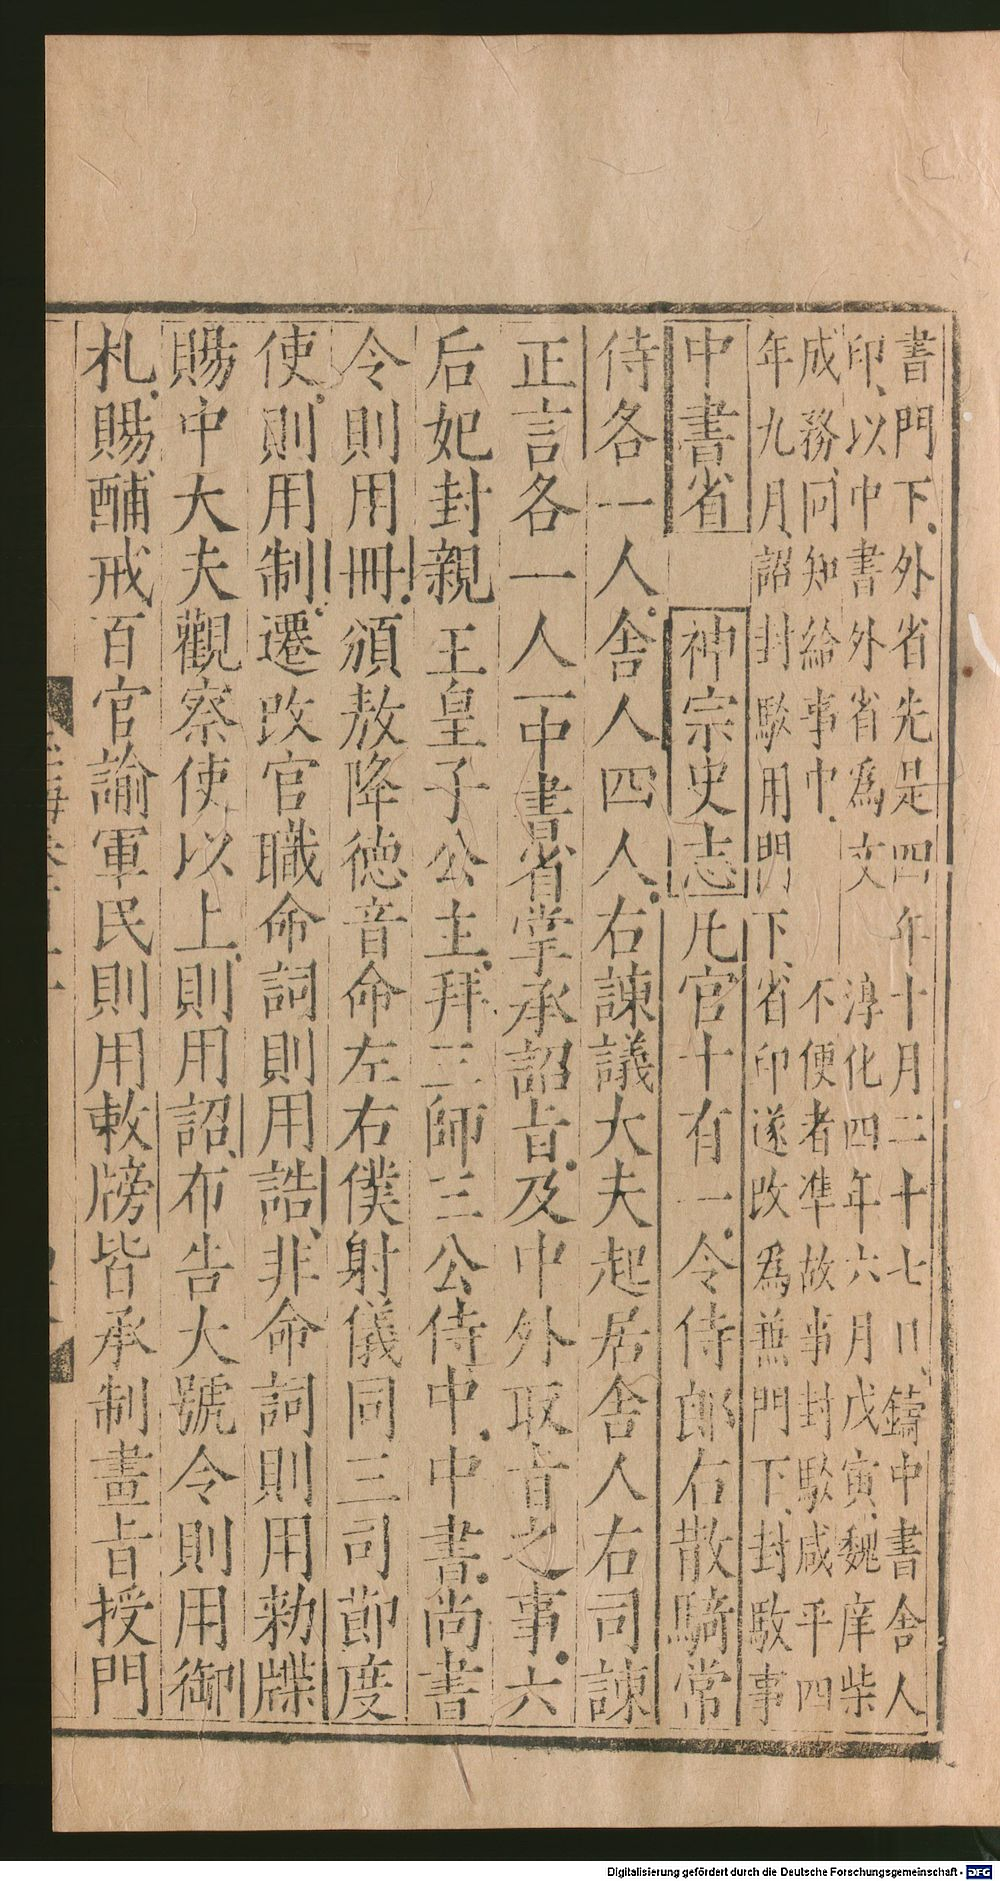 書門下外省先是四年十月二十七日鑄中書舍人
印以中書外省為文　淳化四年六月戊寅魏庠柴
成務同知給事中　不便者準故事封駁咸平四
年九月詔封駁用門下省印遂改為兼門下封駁事
中書省　神宗史志　凡官十有一令侍郎右散騎常
侍各一人舍人四人右諫議大夫起居舍人右司諫
正言各一人中書省掌承詔旨及中外取旨之事六
后妃封親王皇子公主拜三師三公侍中中書尚書
令則用冊頒赦降德音命左右僕射儀同三司節度
使則用制遷改官職命詞則用誥非命詞則用勑牒
賜中大夫觀察使以上則用詔布告大號令則用御
札賜酺戒百官諭軍民則用敕牓皆承制畫旨授門
Digitalisierung gefördert durch die Deutsche Forschungsgemeinschaft - DFG